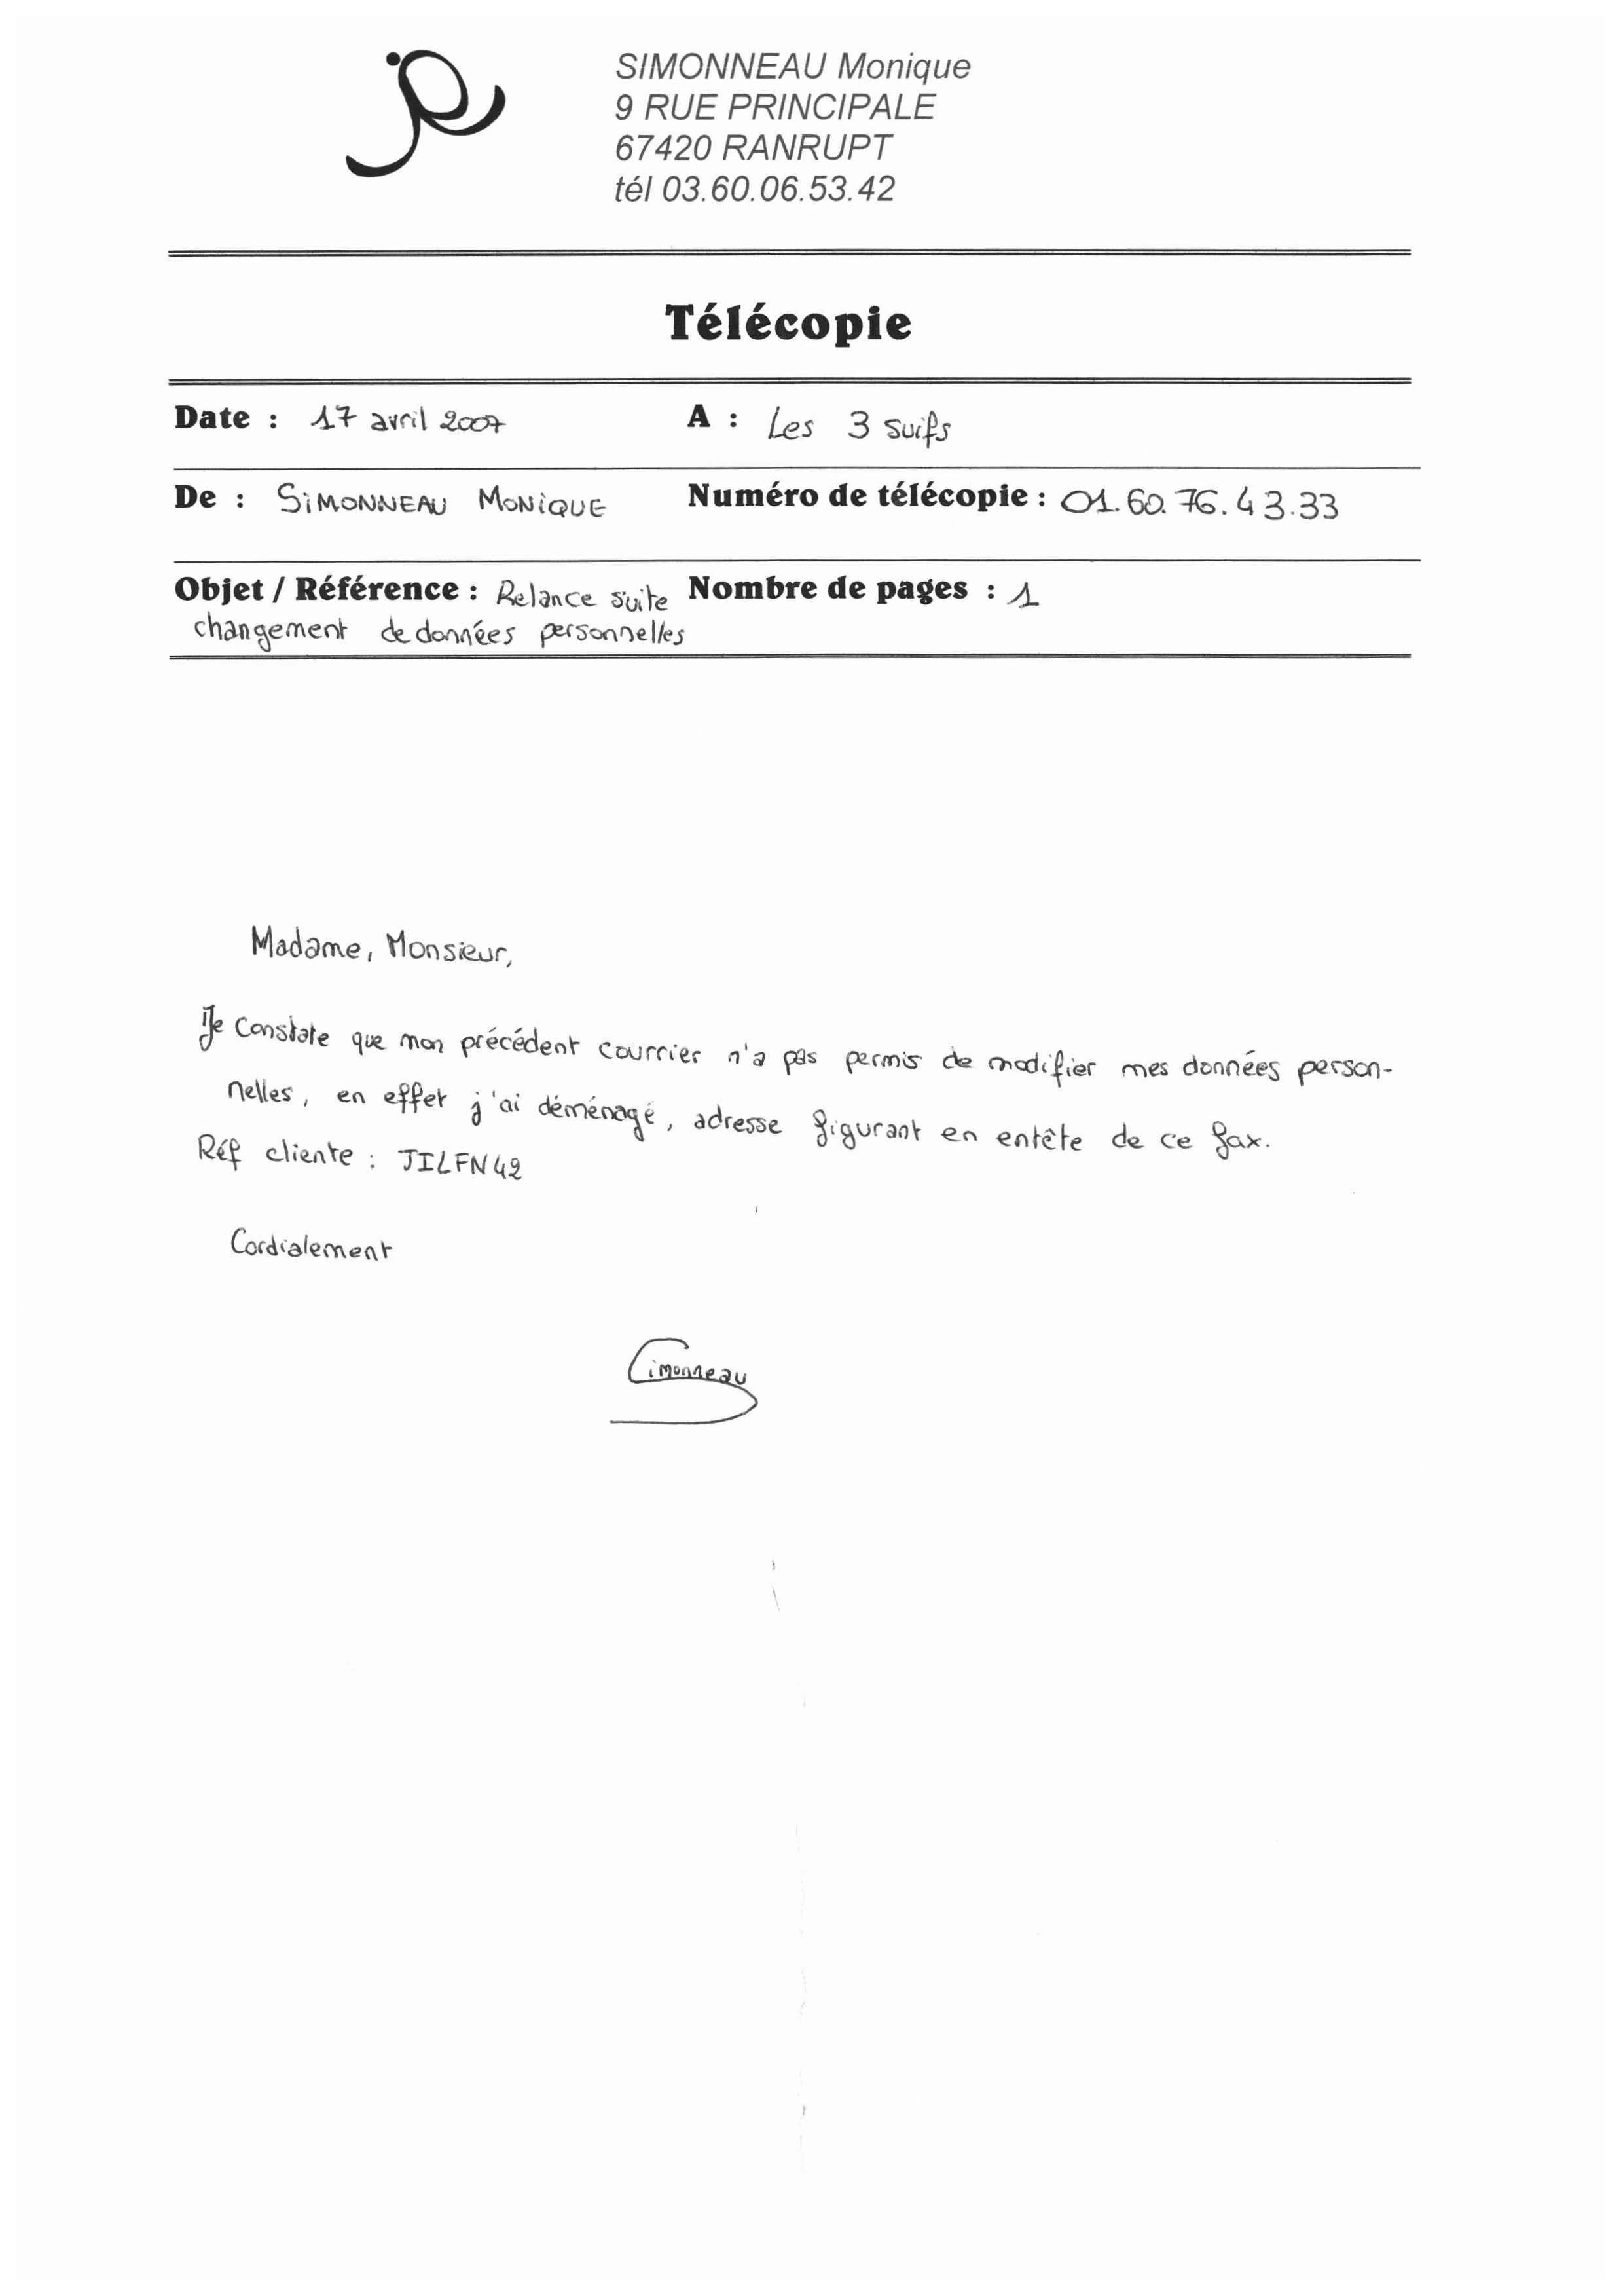 SIMONNEAU Monique
9 RUE PRINCIPALE
67420 RANRUPT
tél 03.60.06.53.42
Télécopie
Date : 17 avril 2007 A : Les 3 suifs
De : SIMONNEAU MONIQUE Numéro de télécopie : 01.60.76.43.33
Objet / Référence : Relance suite Nombre de pages : 1
changement de données personnelles
Madame, Monsieur,
Je constate que mon précédent courrier n'a pas permis de modifier mes données person-
nelles, en effet j'ai déménagé, adresse figurant en entête de ce fax.
Réf cliente : JILFN42
Cordialement
Simonneau